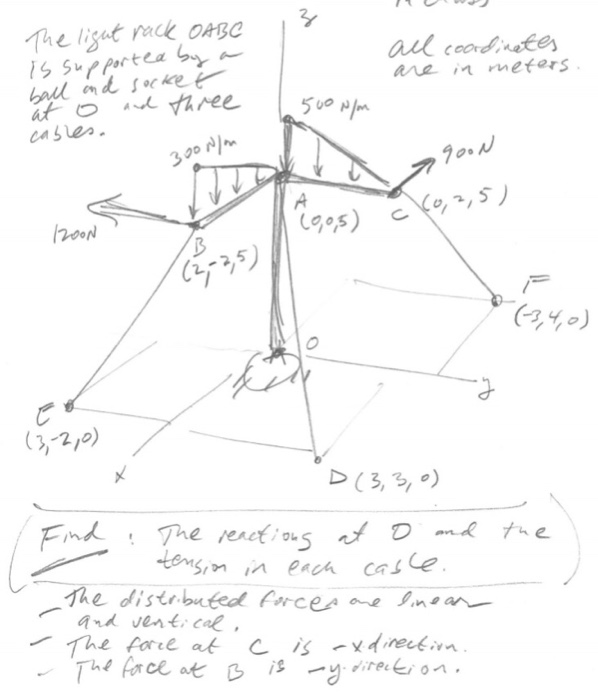 The light rack OABC
is supported by a
ball and socket
at O and three
cables.
z
all coordinates
are in meters.
500 N/m
300 N/m
900N
1200N
A
(0,0,5)
C (0,2,5)
B
(2,-2,5)
F
(-3,4,0)
O
y
E
(3,-2,0)
x
D (3,3,0)
Find : The reactions at O and the
tension in each cable.
- The distributed forces are linear
and vertical.
- The force at C is -x direction.
- The force at B is -y-direction.